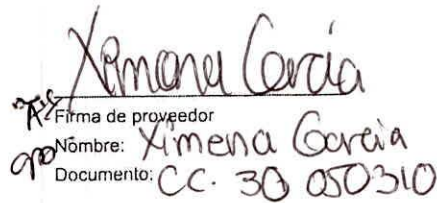 Ximena Garcia
Firma de proveedor
Nombre: Ximena Garcia
Documento: CC. 30 050310